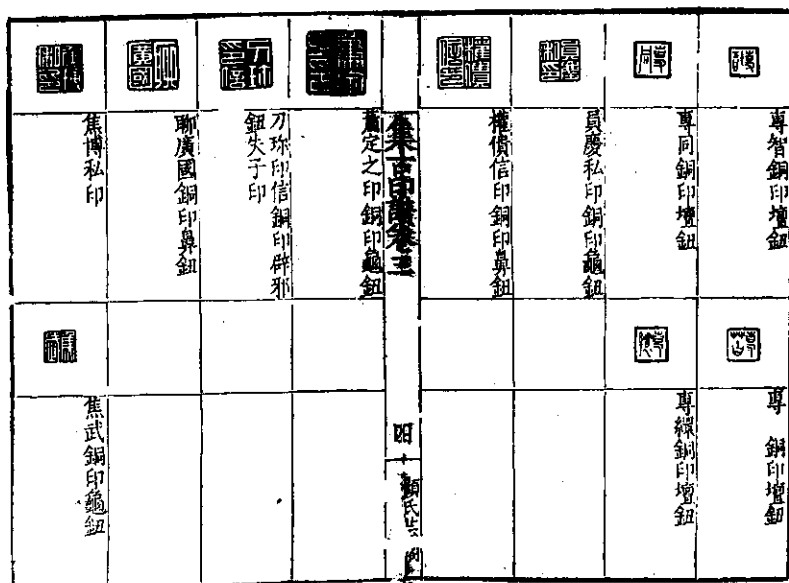 專智銅印壇鈕
專 銅印壇鈕
專同銅印壇鈕
專繹銅印壇鈕
員慶私印銅印龜鈕
權僨信印銅印鼻鈕
集古印譜卷三
四十
顧氏芸閣
定之印銅印龜鈕
刀珎印信銅印辟邪
鈕失子印
聊廣國銅印鼻鈕
焦博私印
焦武銅印龜鈕